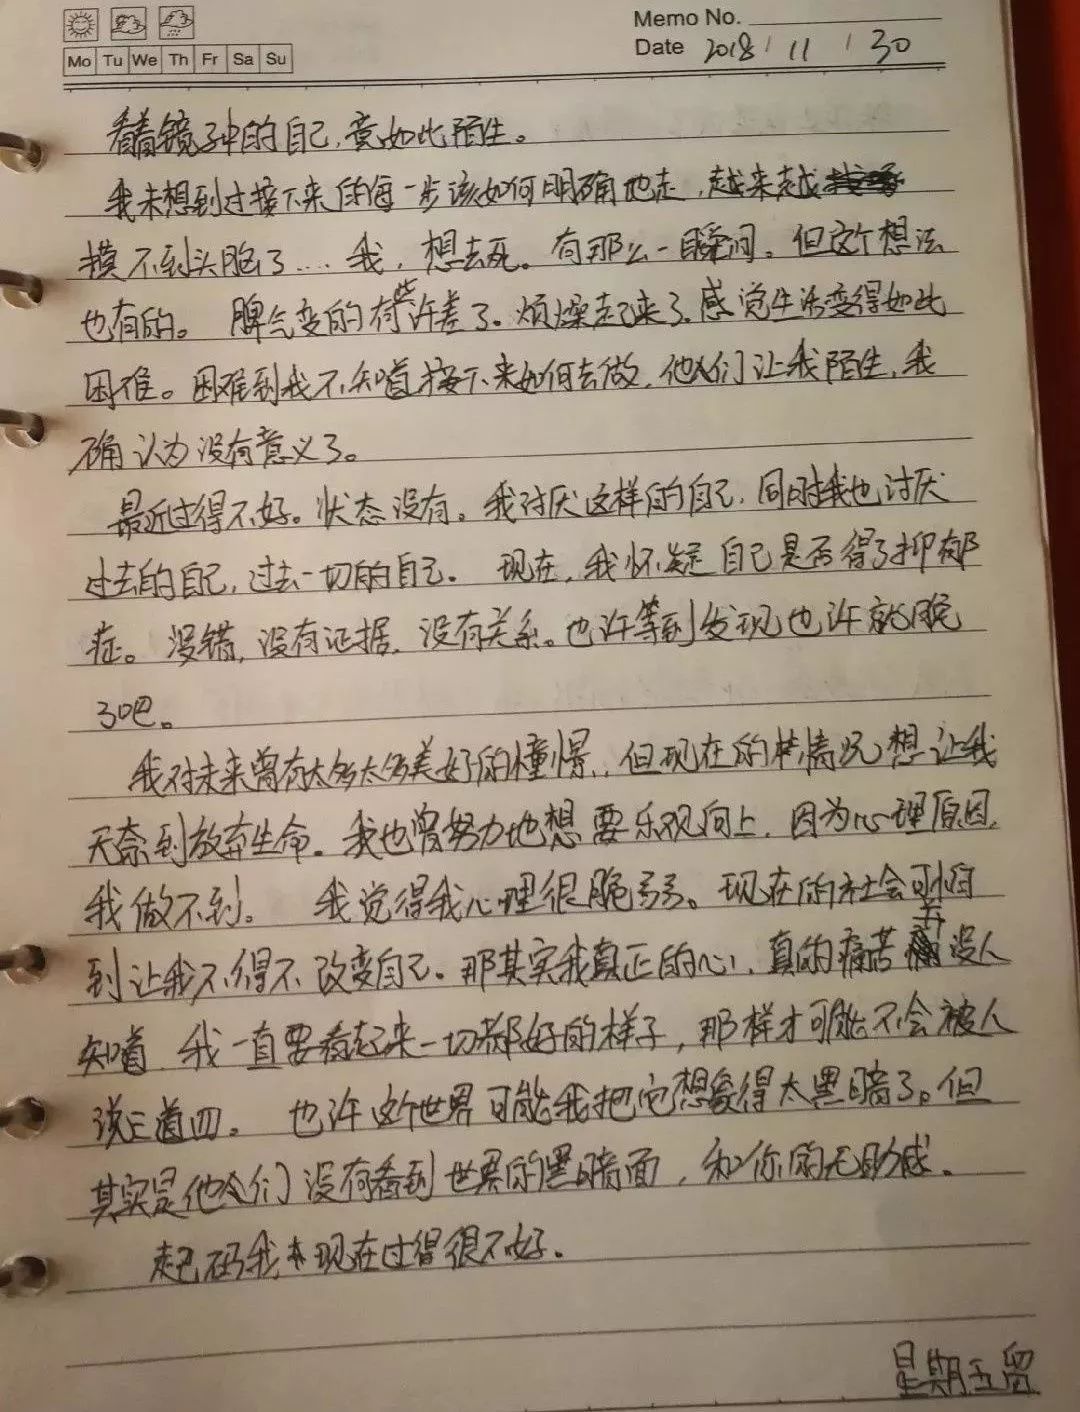 Memo No.
Mo Tu We Th Fr Sa Su
Date 2018 / 11 / 30
看着镜子中的自己,竟如此陌生。
我未想到过接下来的每一步该如何明确地走,越来越
摸不到头脑了....我,想去死。有那么一瞬间。但这个想法
也有的。脾气变的有些许差了。烦燥起来了。感觉生活变得如此
困难。困难到我不知道接下来如何去做,他人们让我陌生,我
确认为没有意义了。
最近过得不好。状态没有。我讨厌这样的自己,同时我也讨厌
过去的自己,过去一切的自己。现在,我怀疑自己是否得了抑郁
症。没错,没有证据,没有关系。也许等到发现也许就晚
了吧。
我对未来曾有太多太多美好的憧憬,但现在的情况想让我
无奈到放弃生命。我也曾努力地想要乐观向上,因为心理原因,
我做不到。我觉得我心理很脆弱。现在的社会可怕
到让我不得不改变自己。那其实我真正的心,真的痛苦并没人
知道,我一直要看起来一切都好的样子,那样才可能不会被人
说三道四。也许这个世界可能我把它想象得太黑暗了。但
其实是他人们没有看到世界的黑暗面,和你的无助感。
起码我现在过得很不好.
星期五留